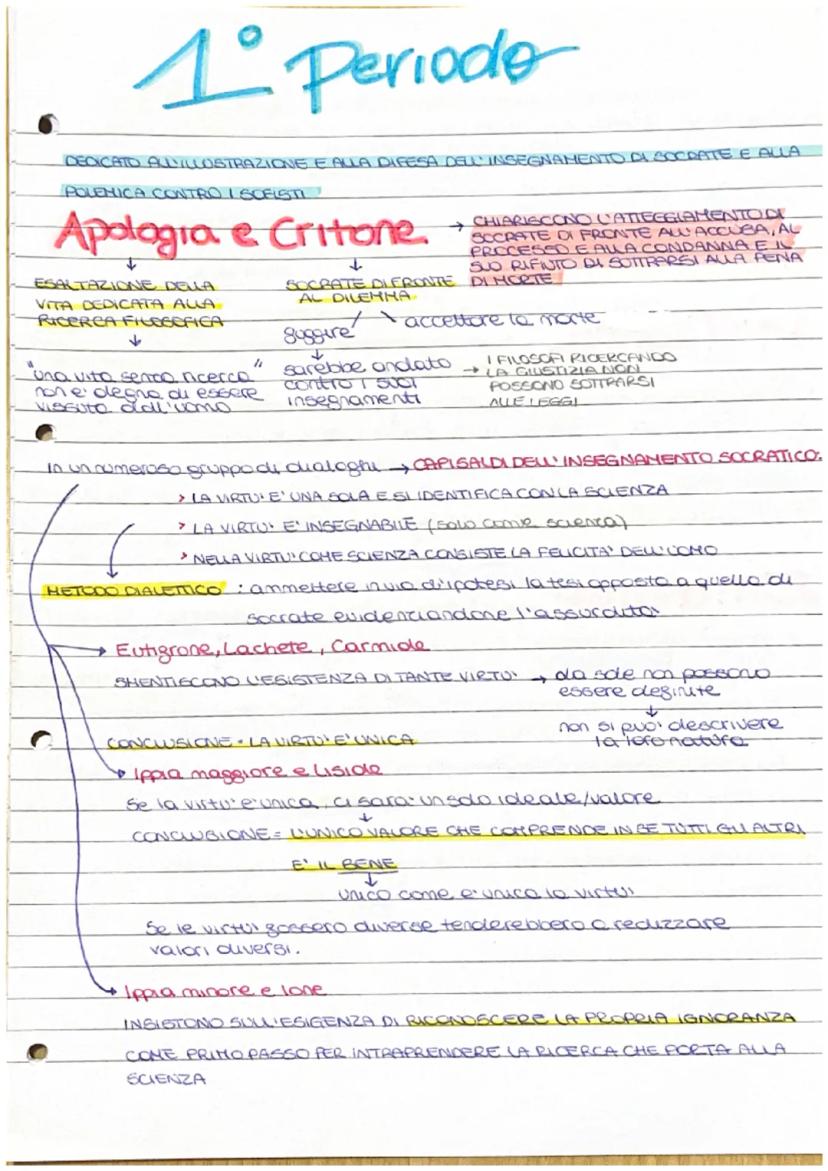 1° Periodo
DEDICATO ALL'ILLUSTRAZIONE E ALLA DIFESA DELL'INSEGNAMENTO DI SOCRATE E ALLA
POLEMICA CONTRO I SOFISTI
Apologia e Critone → CHIARISCONO L'ATTEGGIAMENTO DI
SOCRATE DI FRONTE ALL'ACCUSA, AL
PROCESSO E ALLA CONDANNA E IL
SUO RIFIUTO DI SOTTRARSI ALLA PENA
DI MORTE
↓
ESALTAZIONE DELLA
VITA DEDICATA ALLA
RICERCA FILOSOFICA
↓
"una vita senza ricerca"
non è degna di essere
vissuta dall'uomo
↓
SOCRATE DI FRONTE
AL DILEMMA
fuggire / \ accettare la morte
↓
sarebbe andato
contro i suoi
insegnamenti
→ I FILOSOFI RICERCANDO
LA GIUSTIZIA NON
POSSONO SOTTRARSI
ALLE LEGGI
In un numeroso gruppo di dialoghi → CAPISALDI DELL'INSEGNAMENTO SOCRATICO:
> LA VIRTU' E' UNA SOLA E SI IDENTIFICA CON LA SCIENZA
> LA VIRTU' E' INSEGNABILE (solo come scienza)
> NELLA VIRTU' COME SCIENZA CONSISTE LA FELICITA' DELL'UOMO
METODO DIALETTICO : ammettere in via d'ipotesi la tesi opposta a quella di
socrate evidenziandone l'assurdita'
→ Eutifrone, Lachete, Carmide
SMENTISCONO L'ESISTENZA DI TANTE VIRTU' → da sole non possono
essere definite
↓
non si puo' descrivere
la loro natura
CONCLUSIONE = LA VIRTU' E' UNICA
→ Ippia maggiore e Liside
Se la virtu' e' unica, ci sara' un solo ideale/valore
↓
CONCLUSIONE = L'UNICO VALORE CHE COMPRENDE IN SE TUTTI GLI ALTRI
E' IL BENE
↓
unico come e' unica la virtu'
Se le virtu' fossero diverse tenderebbero a realizzare
valori diversi.
→ Ippia minore e Ione
INSISTONO SULL'ESIGENZA DI RICONOSCERE LA PROPRIA IGNORANZA
COME PRIMO PASSO PER INTRAPRENDERE LA RICERCA CHE PORTA ALLA
SCIENZA